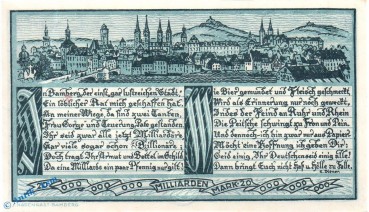 In Bamberg der einst gar lustreichen Stadt,
Ein löblicher Rat mich geschaffen hat.
An meiner Wiege, da sind zwei Tanten,
Frau Sorge und Teuerung, Pate gestanden
Ihr seid zwar alle jetzt Milliardäre,
Gar viele sogar schon Billionäre;
Doch tragt Ihr Armut und Bettel im Schilde
Da eine Milliarde ein paar Pfennig nur gilt.
Wie Bier gemundet und Fleisch geschmeckt,
Wird als Erinnerung nur noch geweckt,
Indes der Feind an Ruhr und Rhein
Die Peitsche schwingt zu Fron und Pein
Und dennoch, ich bin zwar nur aus Papier
Möcht eine Hoffnung ich geben Dir:
Seid einig, Ihr Deutschen seid einig alle!
Dann bringt Euch nicht Not u. Hölle zu Falle.
20 000 000 000 MILLIARDEN MARK 20 000 000 000